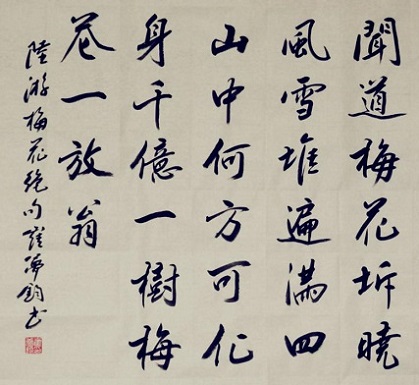 聞道梅花坼曉
風雪堆遍滿四
山中何方可化
身千億一樹梅
花一放翁
陸游梅花絕句崔